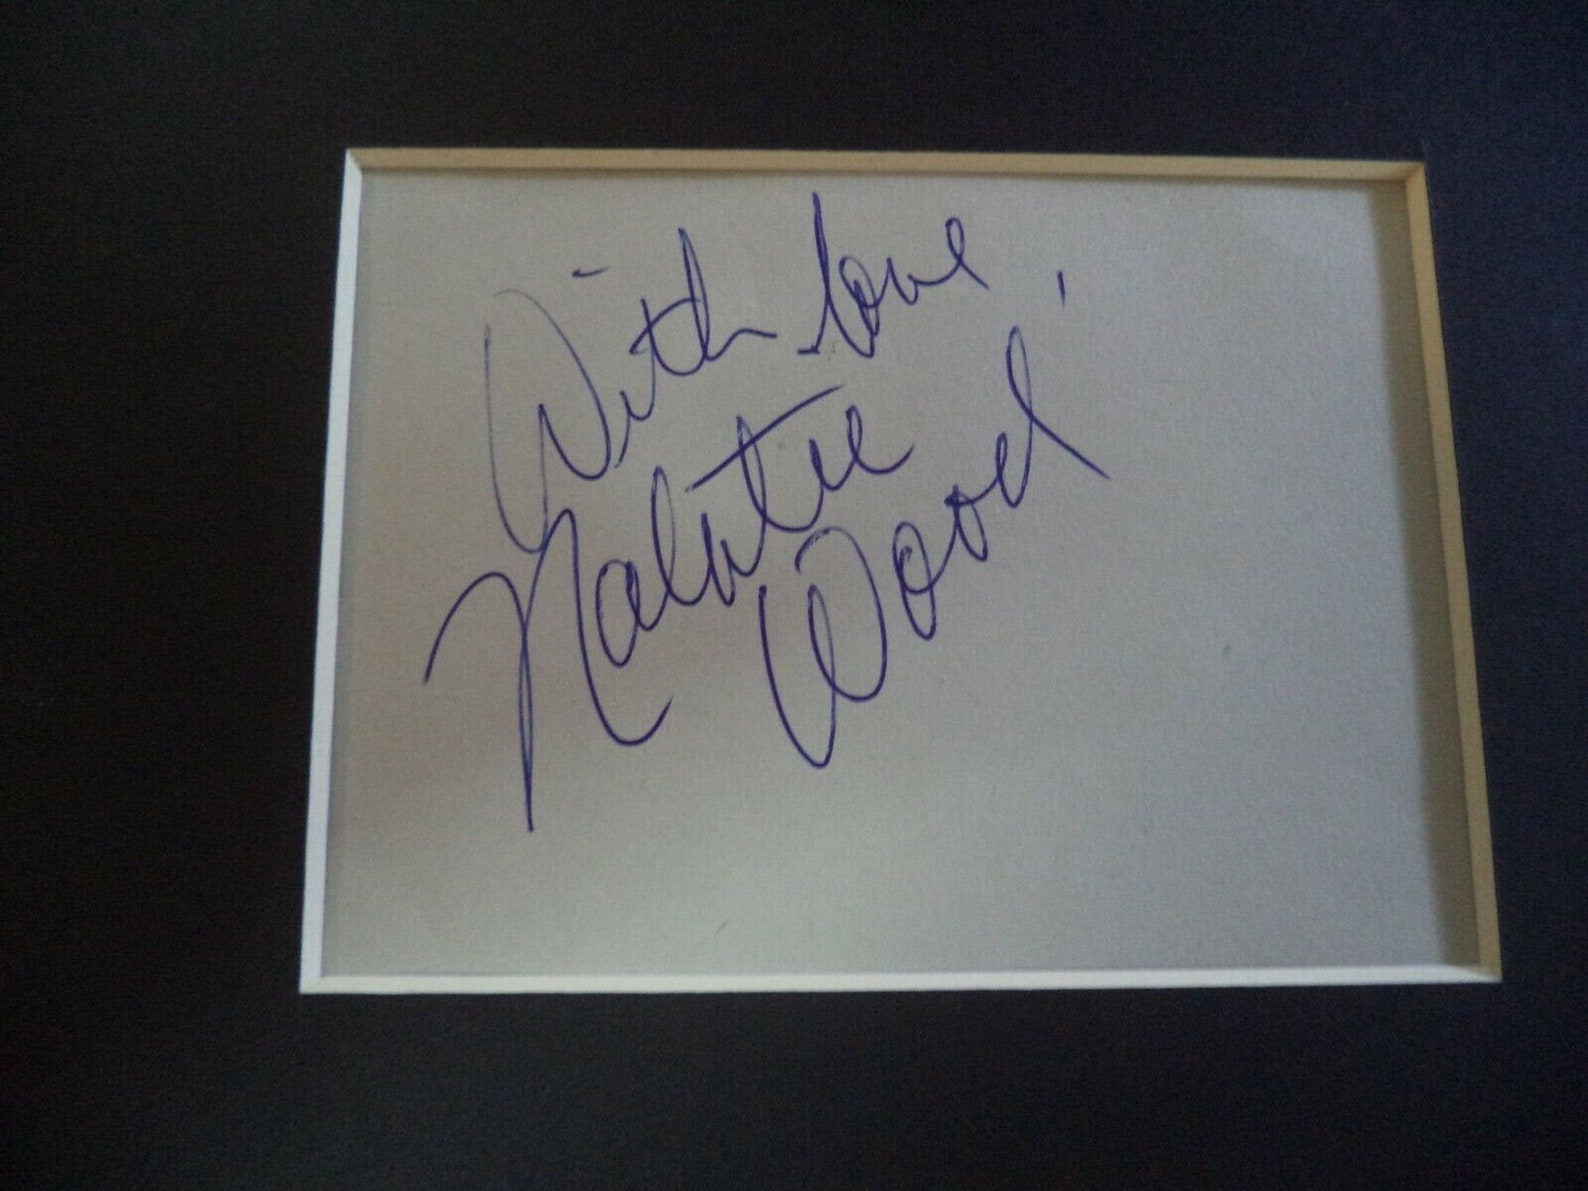 With love,
Natalie
Wood